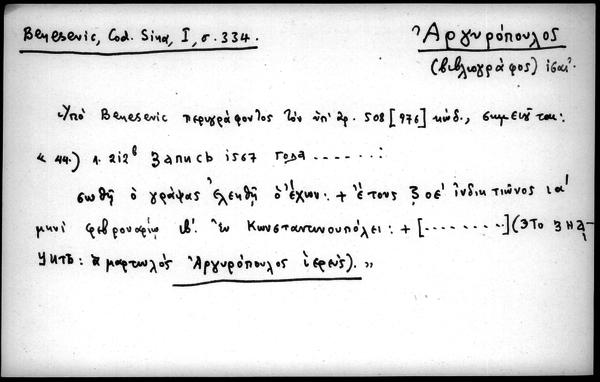 Benesevic, Cod. Sina, I, σ. 334.
Ἀργυρόπουλος
(βιβλιογράφος) ις΄ αἰ.
Ὑπὸ Benesevic περιγράφοντος τὸν ὑπ' ἀρ. 508 [976] κώδ., σημειοῦται:
« 44.) л. 212в Запись 1567 года ......:
σωθῇ ὁ γράψας ἐλεηθῇ ὁ ἔχων: + ἔτους ζοε΄ ἰνδικτιῶνος ια΄
μηνὶ φεβρουαρίῳ ιβ΄. ἐν Κωνσταντινουπόλει: + [........] (это зна-
читъ: ἁμαρτωλός Ἀργυρόπουλος ἱερεύς). »